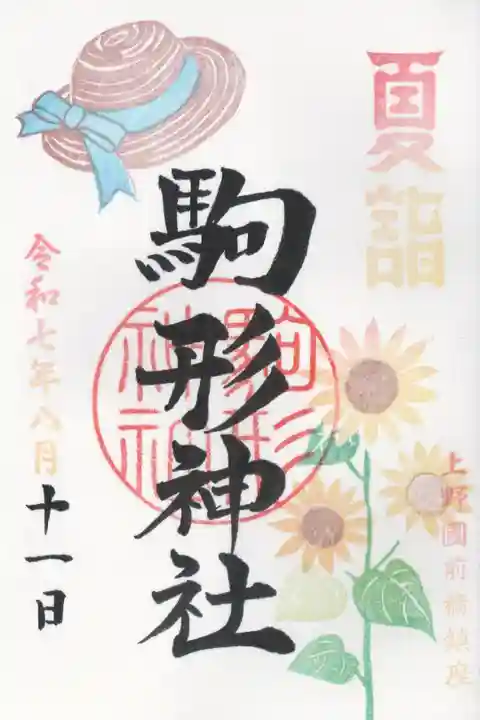 夏詣
駒形神社
駒形
神社
上野國前橋鎮座
令和七年八月十一日